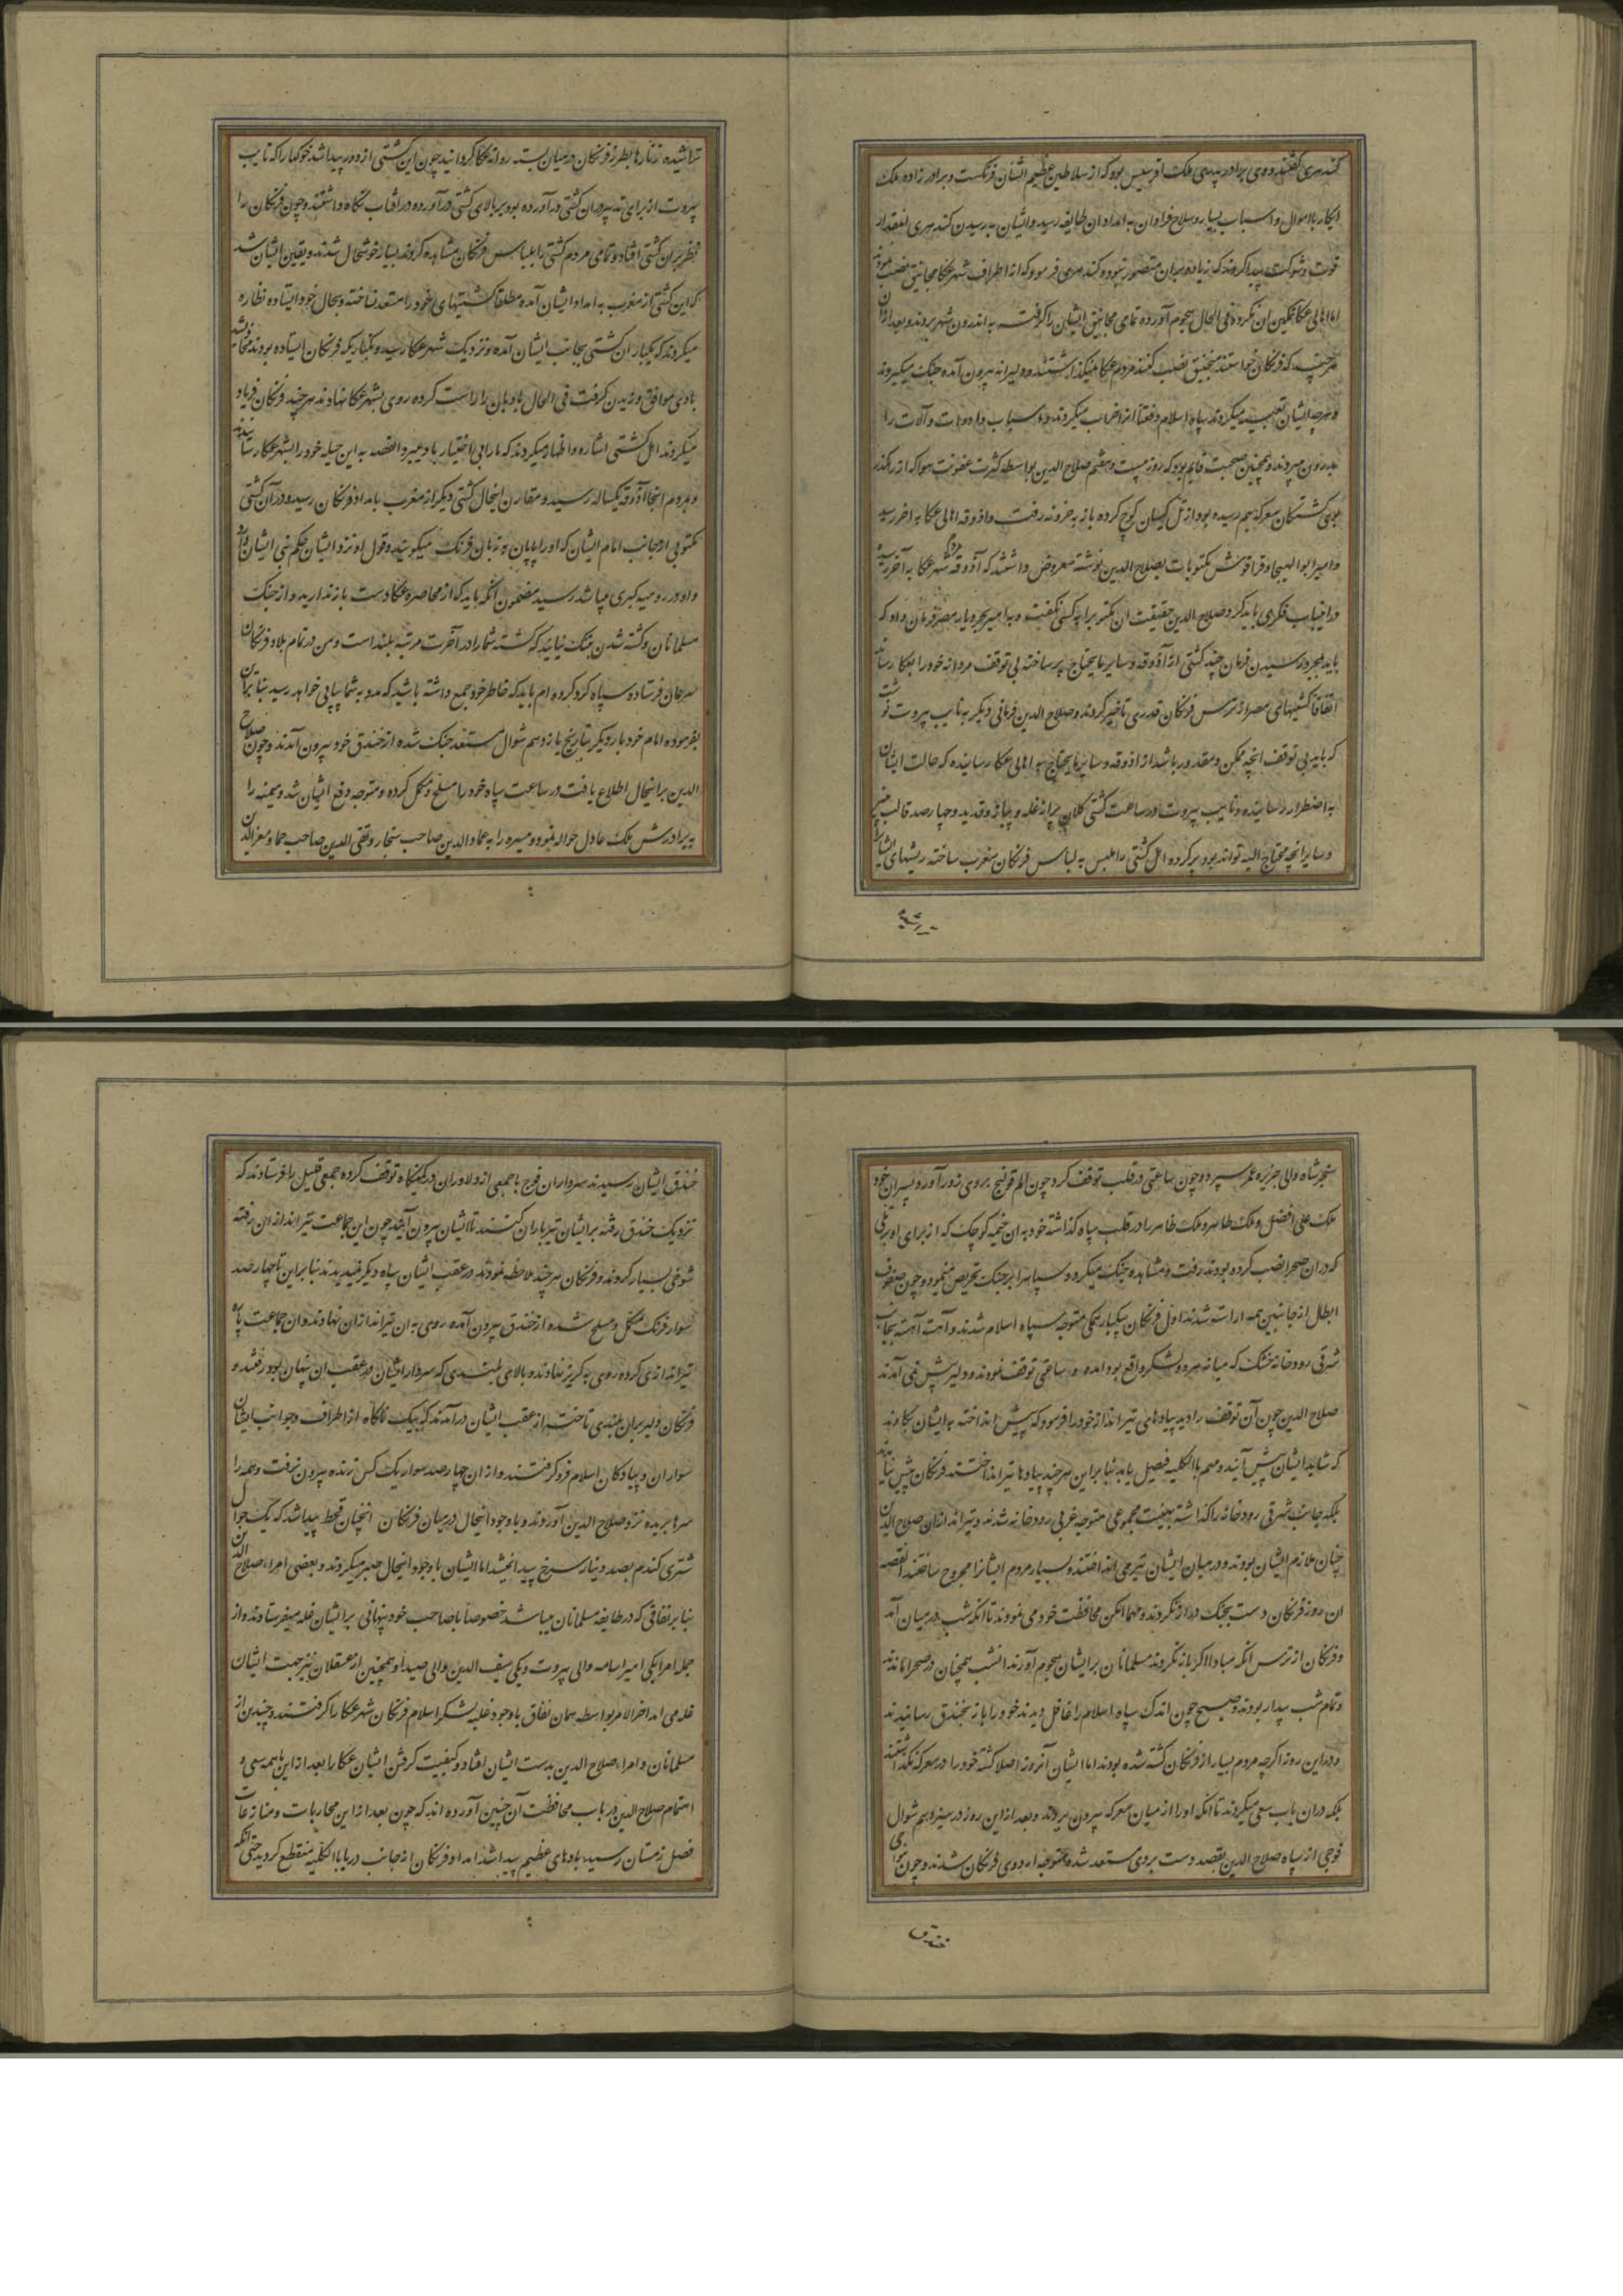 کندهری گفتند و وی برادر پدری ملک افرنسیس بود که از سلاطین عظیم الشان فرنکست و برادر زاده ملک
انکتار با اموال و اسباب بسیار و سلاح فراوان به امداد ان طایفه رسید و ایشان به رسیدن کندهری انمقدار
قوت و شوکت پیدا کردند که زیاده بران متصور نبود و کندهری فرمود که از اطراف شهر عکا مجانیق نصب نمودند
اما اهالی عکا تمکین ان نکرده فی الحال هجوم آورده تمامی مجانیق ایشان را کرفته به اندرون شهر بردند و بعد از ان
هرچند که فرنکان خواستند منجنیق نصب کنند مردم عکا نمیکذاشتند و دلیرانه بیرون آمده جنک میکردند
و هرچه ایشان تعبیه میکردند سپاه اسلام دفعتا انرا خراب میکردند و اسباب و ادوات و آلات را
بدرون میبردند و همچنین صحبت قایم بود که روز بیست و هفتم صلاح الدین بواسطه کثرت عفونت هوا که از رهکذر
بوی کشتکان معرکه بهم رسیده بود از تل کیسان کوچ کرده باز به خروبه رفت و اذوقه اهالی عکا به اخر رسید
و امیر ابو الهیجا و قراقوش مکتوبات بصلاح الدین نوشته معروض داشتند که آذوقه مردم شهر عکا به آخر رسیده
در اینباب فکری باید کرد و صلاح الدین حقیقت ان مکتوبرا به کسی نکفت و به امیر بحر دیار مصر فرمان داد که
باید بمجرد رسیدن فرمان چند کشتی از آذوقه و سایر مایحتاج پر ساخته بی توقف مردانه خود را بعکا رساند
اتفاقا کشتیهای مصر از ترس فرنکان قدری تاخیر کردند و صلاح الدین فرمانی دیکر به نایب بیروت نوشت
که باید بی توقف انچه ممکن و مقدور باشد از اذوقه و سایر مایحتاج به اهالی عکا رسانیده که حالت ایشان
به اضطرار رسانیده و نایب بیروت در ساعت کشتی کلان پر از غله و پیاز و قدید و چهار صد قالب پنیر
و سایر انچه محتاج الیه تواند بود پر کرده اهل کشتی را ملبس به لباس فرنکان مغرب ساخته ریشهای ایشان را
تراشیده
تراشیده زنارها بطرز فرنکان در میان بسته روانه عکا کردانید چون این کشتی از دور پیدا شد خوکها را که نایب
بیروت از برای تدبیر دران کشتی درآورده بود بر بالای کشتی درآورده در افتاب نکاه داشتند و چون فرنکان را
نظر بران کشتی افتاد و تمامی مردم کشتی را بلباس فرنکان مشاهده کردند بسیار خوشحال شدند و یقین ایشان شد
که این کشتی از مغرب به امداد ایشان آمده مطلقا کشتیهای خود را مستعد نساخته و بحال خود ایستاده نظاره
میکردند که یکبار ان کشتی بجانب ایشان آمده و نزدیک شهر عکا رسید و بکناریکه فرنکان ایستاده بودند
بادی موافق وزیدن کرفت فی الحال بادبان را راست کرده روی بشهر عکا نهادند هرچند فرنکان فریاد
میکردند اهل کشتی اشاره و اظهار میکردند که ما را بی اختیار باد میبرد القصه به این حیله خود را بشهر عکا رسانیدند
و بمردم انجا آذوقه یکساله رسید و مقارن اینحال کشتی دیکر از مغرب بامداد فرنکان رسید و در آن کشتی
مکتوبی از جانب امام ایشان که او را پاپان به زبان فرنک میکویند و قول او نزد ایشان حکم نبی ایشان دارد
و او در رومیه کبری میباشد رسید مضمون انکه باید که از محاصره عکا دست باز ندارید و از جنک
مسلمانان و کشته شدن بتنک نیایید که کشته شما را در آخرت مرتبه بلند است و من در تمام بلاد فرنکان
سرعان فرستاده سپاه کرد کرده ام باید که خاطر خود جمع داشته باشید که مدد به شما پیاپی خواهد رسید بنا بران
بفرموده امام خود بار دیکر بتاریخ یازدهم شوال مستعد جنک شده از خندق خود بیرون آمدند و چون صلاح
الدین بر اینحال اطلاع یافت در ساعت سپاه خود را مسلح و مکمل کرده و متوجه دفع ایشان شد و میمنه را
به برادرش ملک عادل حواله نمود و میسره را به عماد الدین صاحب سنجار و تقی الدین صاحب حماه و معز الدین
سنجر شاه والی جزیره عمر سپرده چون ساعتی در قلب توقف کرد چون الم قولنج بروی زور آورد و پسران خود
ملک علی افضل و ملک ظاهر و ملک ظاهر را در قلب سپاه کذاشته خود به ان خیمه کوچک که از برای او بر تلی
که دران صحرا نصب کرده بودند رفت و مشاهده جنک میکرد و سپاهرا بر جنک تحریص مینمود و چون صفوف
ابطال از جانبین همه اراسته شدند اول فرنکان بیکبارکی متوجه سپاه اسلام شدند و آهسته آهسته بجانب
شرقی رودخانه خشک که میانه هر دو لشکر واقع بود آمده و ساعتی توقف نمودند و دلیر پیش نمی آمدند
صلاح الدین چون آن توقف را دید پیادهای تیرانداز خود را فرمود که پیش انداخته به ایشان بکاوند
که شاید ایشان پیش آیند و مهم بالکلیه فیصل یابد بنا براین هرچند پیادها تیر انداختند فرنکان پیش نیامدند
بلکه جانب شرقی رودخانه را کذاشته بهیئت مجموعی متوجه غربی رودخانه شدند و تیراندازان صلاح الدین
چنان ملازم ایشان بودند و در میان ایشان تیر می انداختند و بسیار مردم ایشانرا مجروح ساختند القصه
ان روز فرنکان دست بجنک دراز نکردند و مهما امکن محافظت خود می نمودند تا انکه شب در میان آمد
و فرنکان از ترس انکه مبادا اکر باز نکردند مسلمانان بر ایشان هجوم آورند انشب همچنان در صحرا ماندند
و تمام شب بیدار بودند و صبح چون اندک سپاه اسلام را غافل دیدند خود را باز بخندق رسانیدند
و در این روز اکرچه مردم بسیار از فرنکان کشته شده بودند اما ایشان آنروز اصلا کشته خود را در معرکه نکذاشتند
بلکه دران باب سعی میکردند تا انکه او را از میان معرکه بیرون بردند و بعد از این روز در سیزدهم شوال
فوجی از سپاه صلاح الدین بقصد دست بردی مستعد شده متوجه اردوی فرنکان شدند و چون
خندق
خندق ایشان رسیدند سرداران فوج با جمعی از دلاوران در کمینکاه توقف کرده جمعی قلیل را فرستادند که
نزدیک خندق رفته بر ایشان تیرباران کنند تا ایشان بیرون آیند چون این جماعت تیرانداز ان رفته
شوخی بسیار کردند و فرنکان هرچند ملاحظه نمودند در عقب ایشان سپاه دیکر ندیدند بنا براین تا چهار صد
سوار فرنک مکمل و مسلح شده از خندق بیرون آمده روی به ان تیراندازان نهادند و ان جماعت پاره
تیراندازی کرده روی به کریز نهادند و بالای بلندی که سردار ایشان در عقب ان پنهان بود رفتند و
فرنکان دلیر بران بلندی تاخته از عقب ایشان درآمدند که بیک ناکاه از اطراف و جوانب ایشان
سواران و پیادکان اسلام فرو کرفتند و از ان چهار صد سوار یک کس زنده بیرون نرفت و همه را
سرها بریده نزد صلاح الدین آوردند و باوجود اینحال در میان فرنکان انچنان قحط پیدا شد که یک جوال
شتری کندم بصد دینار سرخ پیدا نمیشد اما ایشان باوجود اینحال صبر میکردند و بعضی امراء صلاح الدین
بنا بر نفاقی که در طایفه مسلمانان میباشد خصوصا با صاحب خود پنهانی برایشان غله میفرستادند و از
جمله امرا یکی امیر اسامه والی بیروت و یکی سیف الدین والی صیدا و همچنین از عسقلان نیز جهت ایشان
غله می امد اخر الامر بواسطه همان نفاق باوجود غلبه لشکر اسلام فرنکان شهر عکا را کرفتند و چندین از
مسلمانان و امراء صلاح الدین بدست ایشان افتاد و کیفیت کرفتن ایشان عکا را بعد از این همه سعی و
اهتمام صلاح الدین در باب محافظت آن چنین آورده اند که چون بعد از این محاربات و منازعات
فصل زمستان رسید بادهای عظیم پیدا شد امداد فرنکان از جانب دریا بالکلیه منقطع کردید حتی انکه